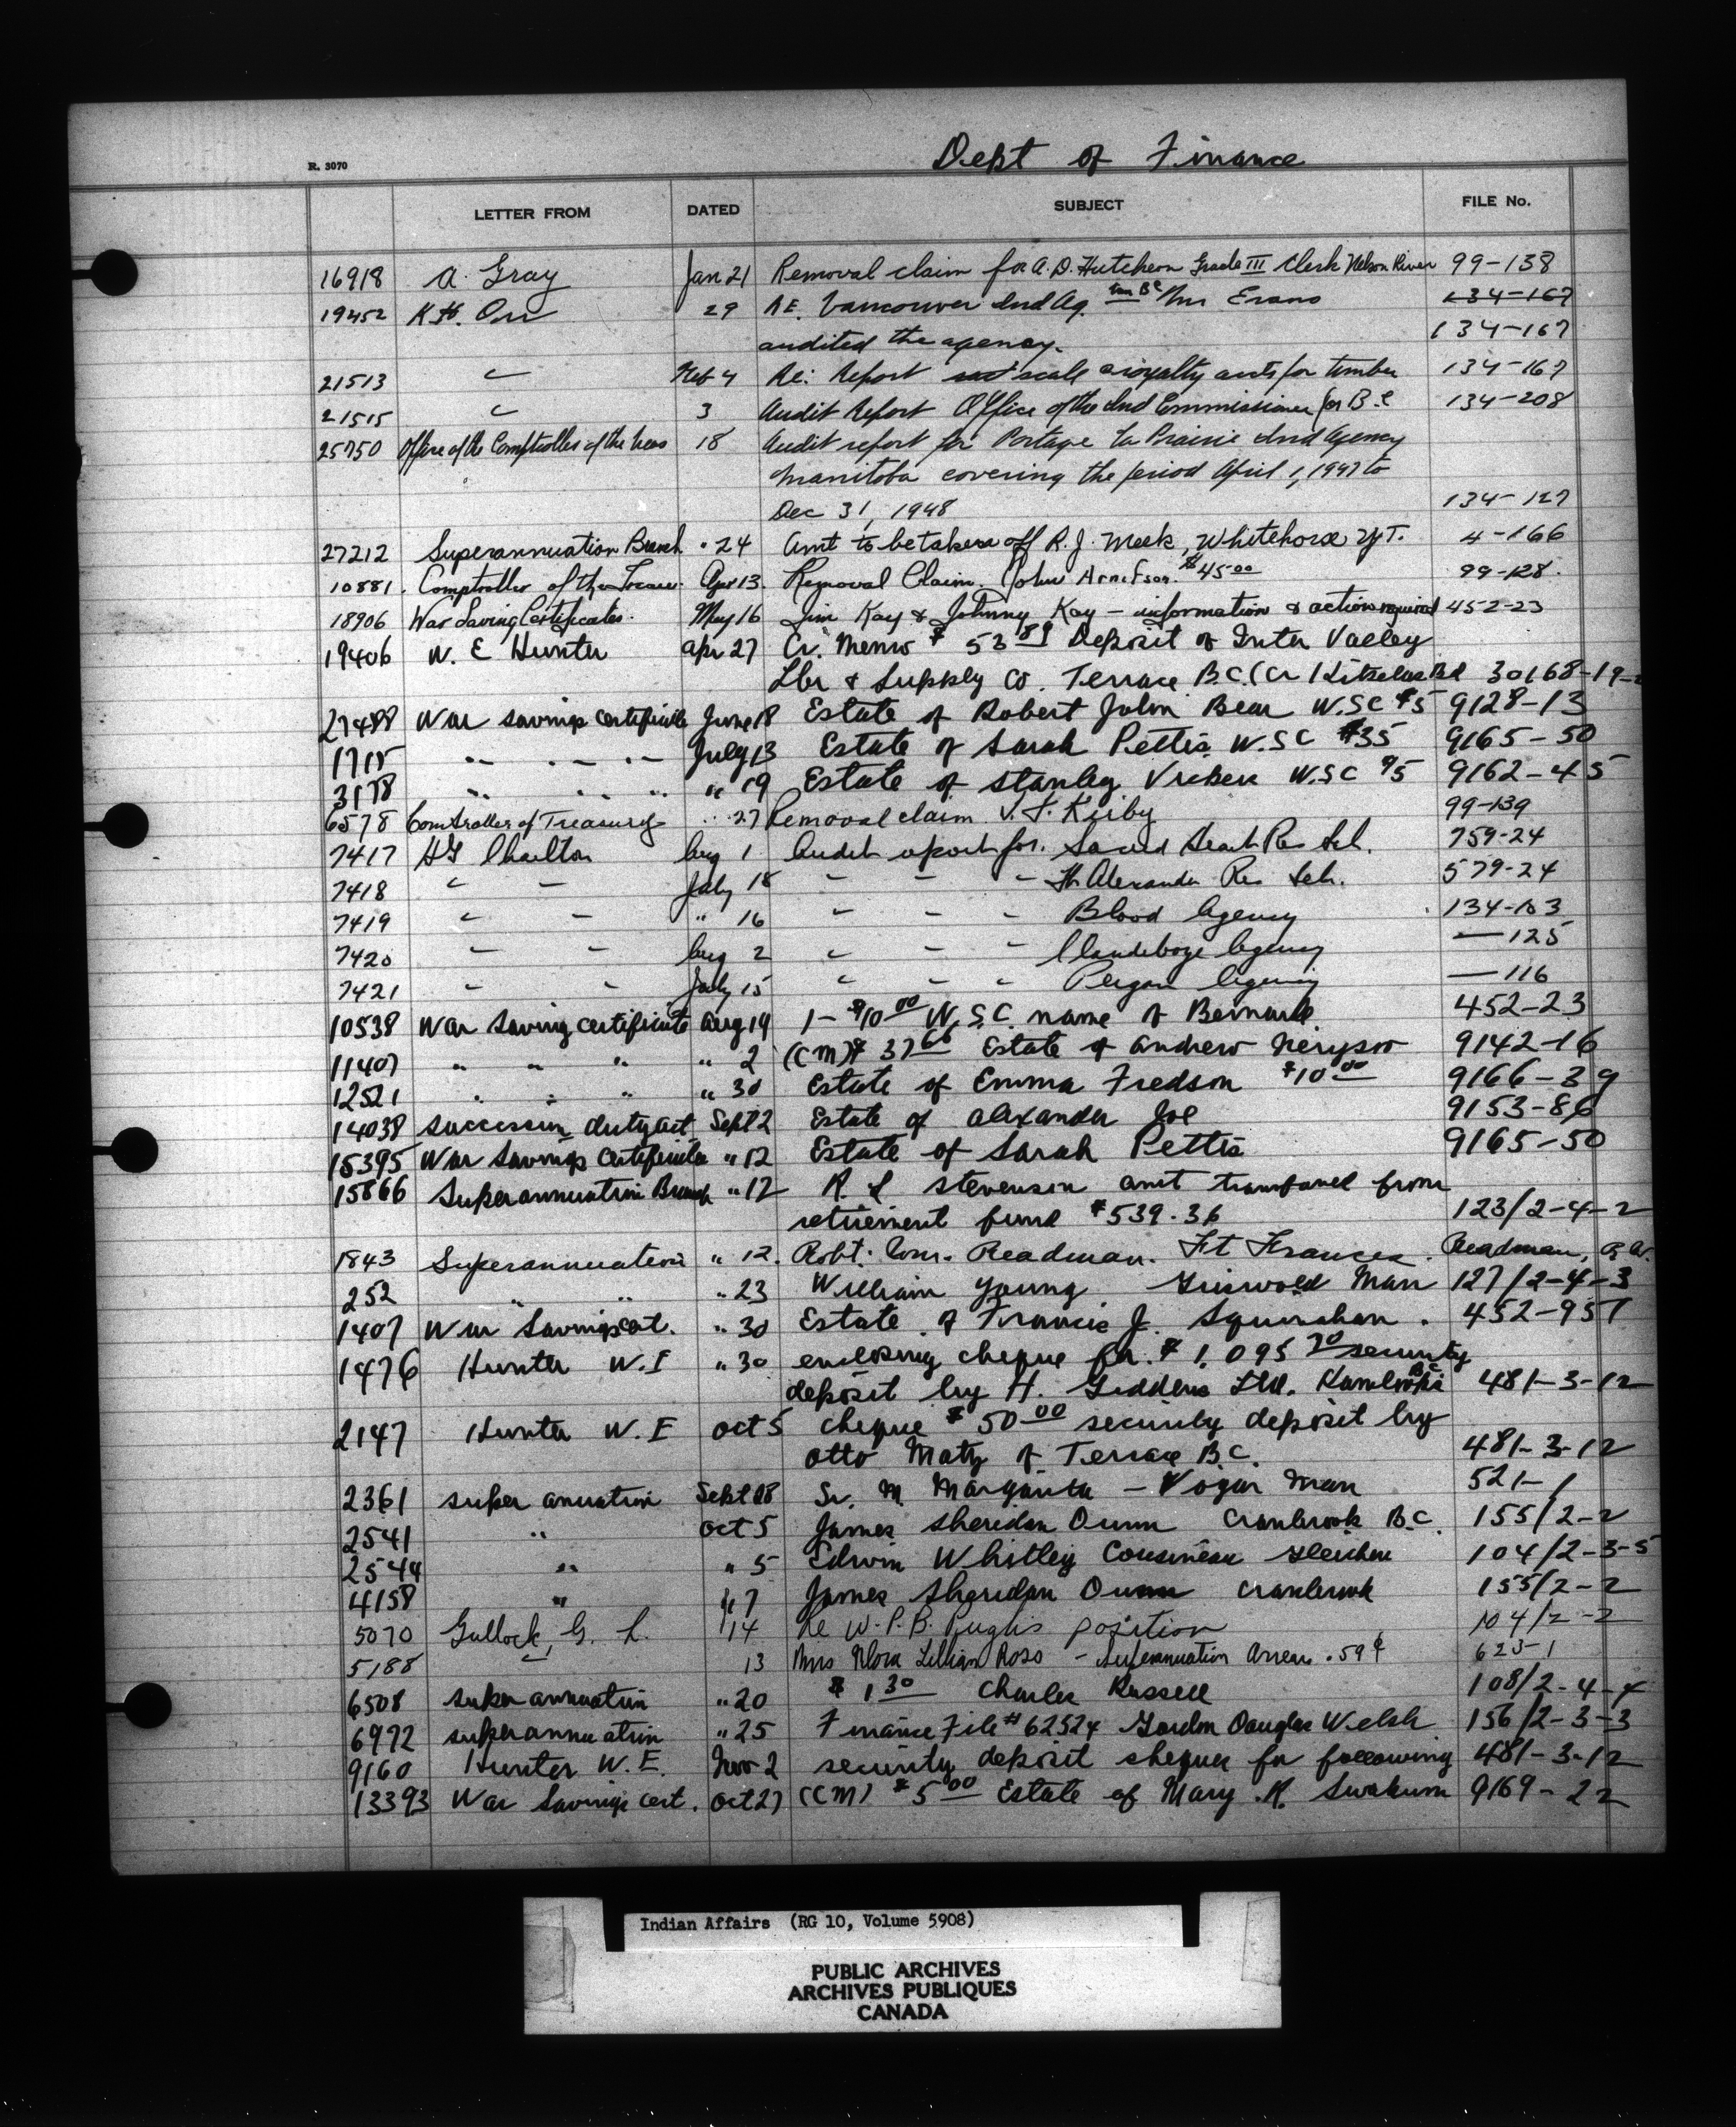 Dept of Finance
R. 3070
LETTER FROM DATED SUBJECT FILE No.
16918 A. Gray Jan 21 Removal claim for A. D. Hutcheon Grade III Clerk Nelson River 99-138
19452 K. H. Orr 29 RE. Vancouver Ind Ag. Mr Evans 134-167
audited the agency. 134-167
21513 " Feb 4 Re: Report scale & royalty accts for timber 134-167
21515 " 3 Audit Report Office of the Ind Commissioner for B.C 134-208
25750 Office of the Comptroller of the Treas 18 Audit report for Portage La Prairie Ind Agency
Manitoba covering the period April 1, 1947 to
Dec 31, 1948 134-127
27212 Superannuation Branch " 24 Amt to be taken off R. J. Meek, Whitehorse Y.T. 4-166
10881. Comptroller of the Treasu. Apr 13. Removal Claim. John Arnetson. $45.00 99-128.
18906 War Saving Certificates. May 16 Jim Kay & Johnny Kay - information & action required 452-23
19406 W. E Hunter Apr 27 Cr. Memo $ 53.89 Deposit of Inter Valley
Lbr & Supply Co. Terrace B.C. (Cr Kitselas Bd 30168-19-2
27488 War savings certificate June 18 Estate of Robert John Bear W.SC $5 9128-13
1715 " " " July 13 Estate of Sarah Pettis W.SC $35 9165-50
3178 " " " " 19 Estate of Stanley W.SC $5 9162-45
6578 Comtroller of Treasury " 27 Removal claim J. Kirby 99-139
7417 HG Charlton Aug 1 Audit report for. Sacred Heart Res Sch. 759-24
7418 " " July 18 " " " Ft Alexander Res Sch. 579-24
7419 " " " 16 " " " Blood Agency 134-103
7420 " " Aug 2 " " " Clandeboye Agency — 125
7421 " " July 15 " " " Peigan Agency — 116
10538 War Saving certificate Aug 19 1- $10.00 W.S.C. name of Bernard 452-23
11407 " " " " 2 (CM) $ 37.66 Estate of Andrew 9142-16
12521 " " " " 30 Estate of Emma Fredson $10.00 9166-39
14038 Succession duty act Sept 2 Estate of Alexander Joe 9153-86
15395 War Savings Certificate " 12 Estate of Sarah Pettis 9165-50
15866 Superannuation Branch " 12 R. L Stevenson amt transfered from
retirement fund $539.36 123/2-4-2
1843 Superannuation " 12. Robt. Wm. Readman. Ft Frances. Readman, R. W.
252 " " " 23 William Young Griswold Man 127/2-4-3
1407 War Savings cert. " 30 Estate of Francis J. Squinahan. 452-957
1476 Hunter W. E " 30 enclosing cheque for $ 1,095.70 security
deposit by H. Giddens Ltd. Kamloops BC 481-3-12
2147 Hunter W. E Oct 5 cheque $ 50.00 security deposit by
Otto Matz of Terrace B.C. 481-3-12
2361 super anuation Sept 28 Sr. M. Margarita - Vogar Man 521-1
2541 " Oct 5 James Sheridan Dunn Cranbrook B.C. 155/2-2
2544 " " 5 Edwin Whitley Cousineau Gleichen 104/2-3-5
4158 " " 7 James Sheridan Dunn Cranbrook 155/2-2
5070 Gullock, G. L. 14 Re W. P. B. Pugh's position 104/2-2
5188 " 13 Mrs Flora Lillian Ross - Superannuation Arrears .59¢ 623-1
6508 super annuation " 20 $ 1.30 Charles Russell 108/2-4-4
6972 superannuation " 25 Finance File # 62524 Gordon Douglas Welsh 156/2-3-3
9160 Hunter W. E. Nov 2 security deposit cheques for following 481-3-12
13393 War Savings cert. Oct 27 (CM) $ 5.00 Estate of Mary R. Swakum 9169-22
Indian Affairs (RG 10, Volume 5908)
PUBLIC ARCHIVES
ARCHIVES PUBLIQUES
CANADA